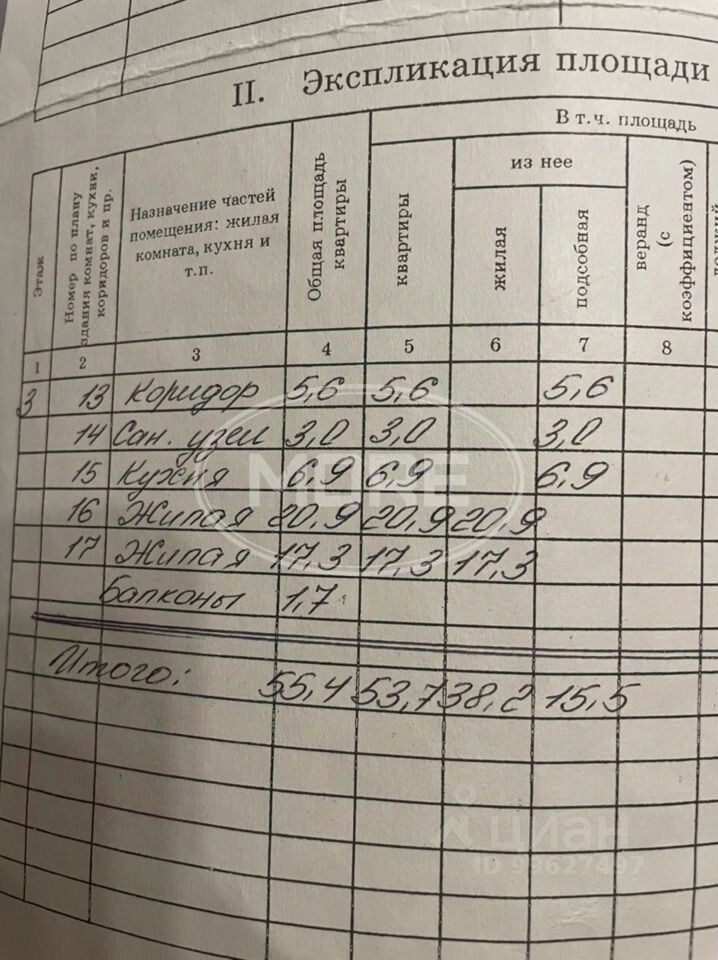 II. Экспликация площади
Этаж
Номер по плану здания комнат, кухни, коридоров и пр.
Назначение частей
помещения: жилая
комната, кухня и
т.п.
Общая площадь квартиры
В т.ч. площадь
квартиры
из нее
жилая
подсобная
веранд (с коэффициентом)
1 2 3 4 5 6 7 8
3 13 Коридор 5,6 5,6 5,6
14 Сан. узел 3,0 3,0 3,0
15 Кухня 6,9 6,9 6,9
16 Жилая 20,9 20,9 20,9
17 Жилая 17,3 17,3 17,3
Балконы 1,7
Итого: 55,4 53,7 38,2 15,5
MORE
циан